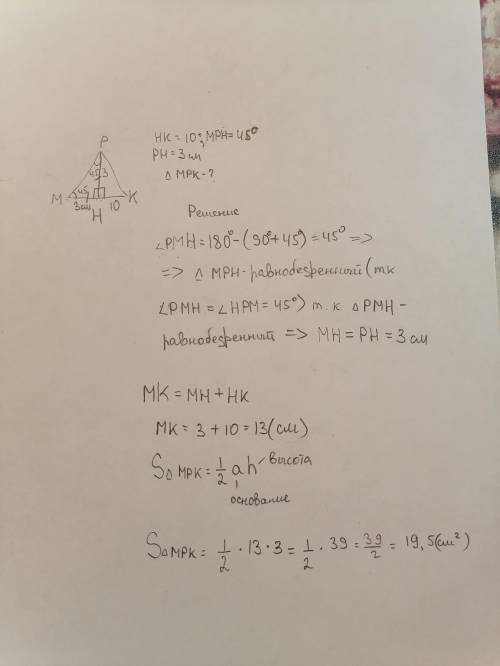 P
45 3
M 45 K
3см 10
H
HK = 10; MPH = 45°
PH = 3 см
△ MPK - ?
Решение
∠PMH = 180° - (90° + 45°) = 45° =>
=> △ MPH - равнобедренный (т к
∠PMH = ∠HPM = 45°) т. к △ PMH -
равнобедренный => MH = PH = 3 см
MK = MH + HK
MK = 3 + 10 = 13 (см)
S△ MPK = 1/2 ah высота
основание
S△MPK = 1/2 · 13 · 3 = 1/2 · 39 = 39/2 = 19,5 (см²)